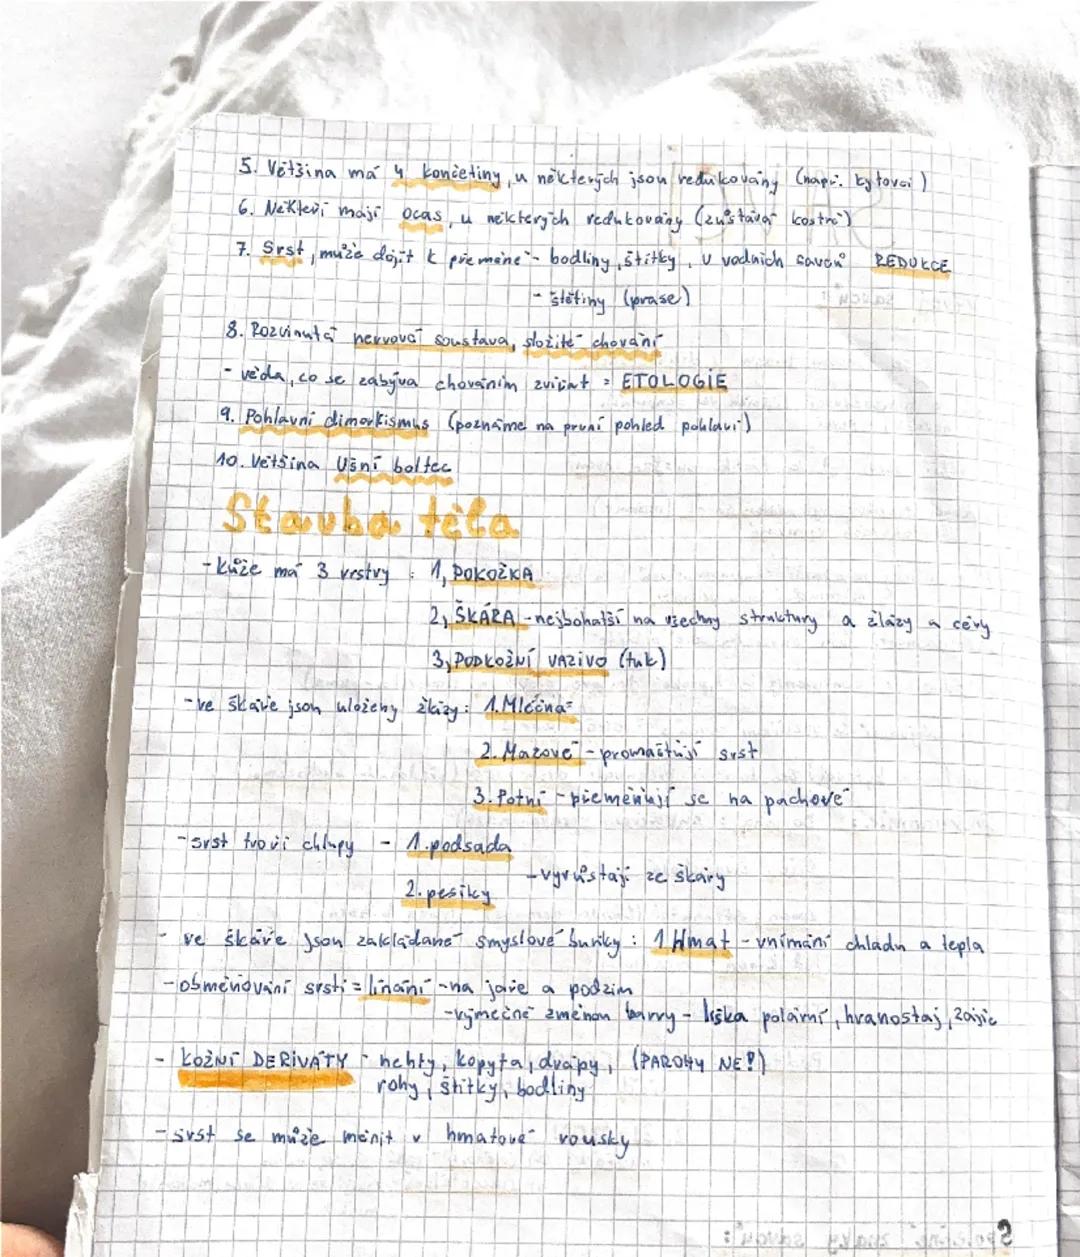 5. Většina má 4 končetiny, u některých jsou redukovány (např. kytovci)
6. Někteří mají ocas, u některých redukovány (zůstává kostrč)
7. Srst, může dojít k přeměně - bodliny, štítky, u vodních savců REDUKCE
- štětiny (prase)
8. Rozvinutá nervová soustava, složité chování
- věda, co se zabývá chováním zvířat = ETOLOGIE
9. Pohlavní dimorkismus (poznáme na první pohled pohlaví)
10. Většina Ušní boltec
Stavba těla
- kůže má 3 vrstvy : 1, POKOŽKA
2, ŠKÁRA - nejbohatší na všechny struktury a žlázy a cévy
3, PODKOŽNÍ VAZIVO (tuk)
- ve škáře jsou uloženy žlázy: 1. Mléčná
2. Mazové - promašťují srst
3. Potní - přeměňují se na pachové
- srst tvoří chlupy - 1. podsada
- vyrůstají ze škáry
2. pesíky
- ve škáře jsou zakládané smyslové buňky : 1. Hmat - vnímání chladu a tepla
- obměňování srsti = línání - na jaře a podzim
- výjmečně změnou barvy - liška polární, hranostaj, zajíc
- KOŽNÍ DERIVÁTY - nehty, kopyta, drápy, (PAROHY NE!)
rohy, štítky, bodliny
- srst se může měnit v hmatové vousky